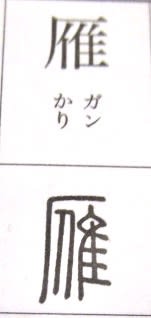 雁
ガン
かり
雁